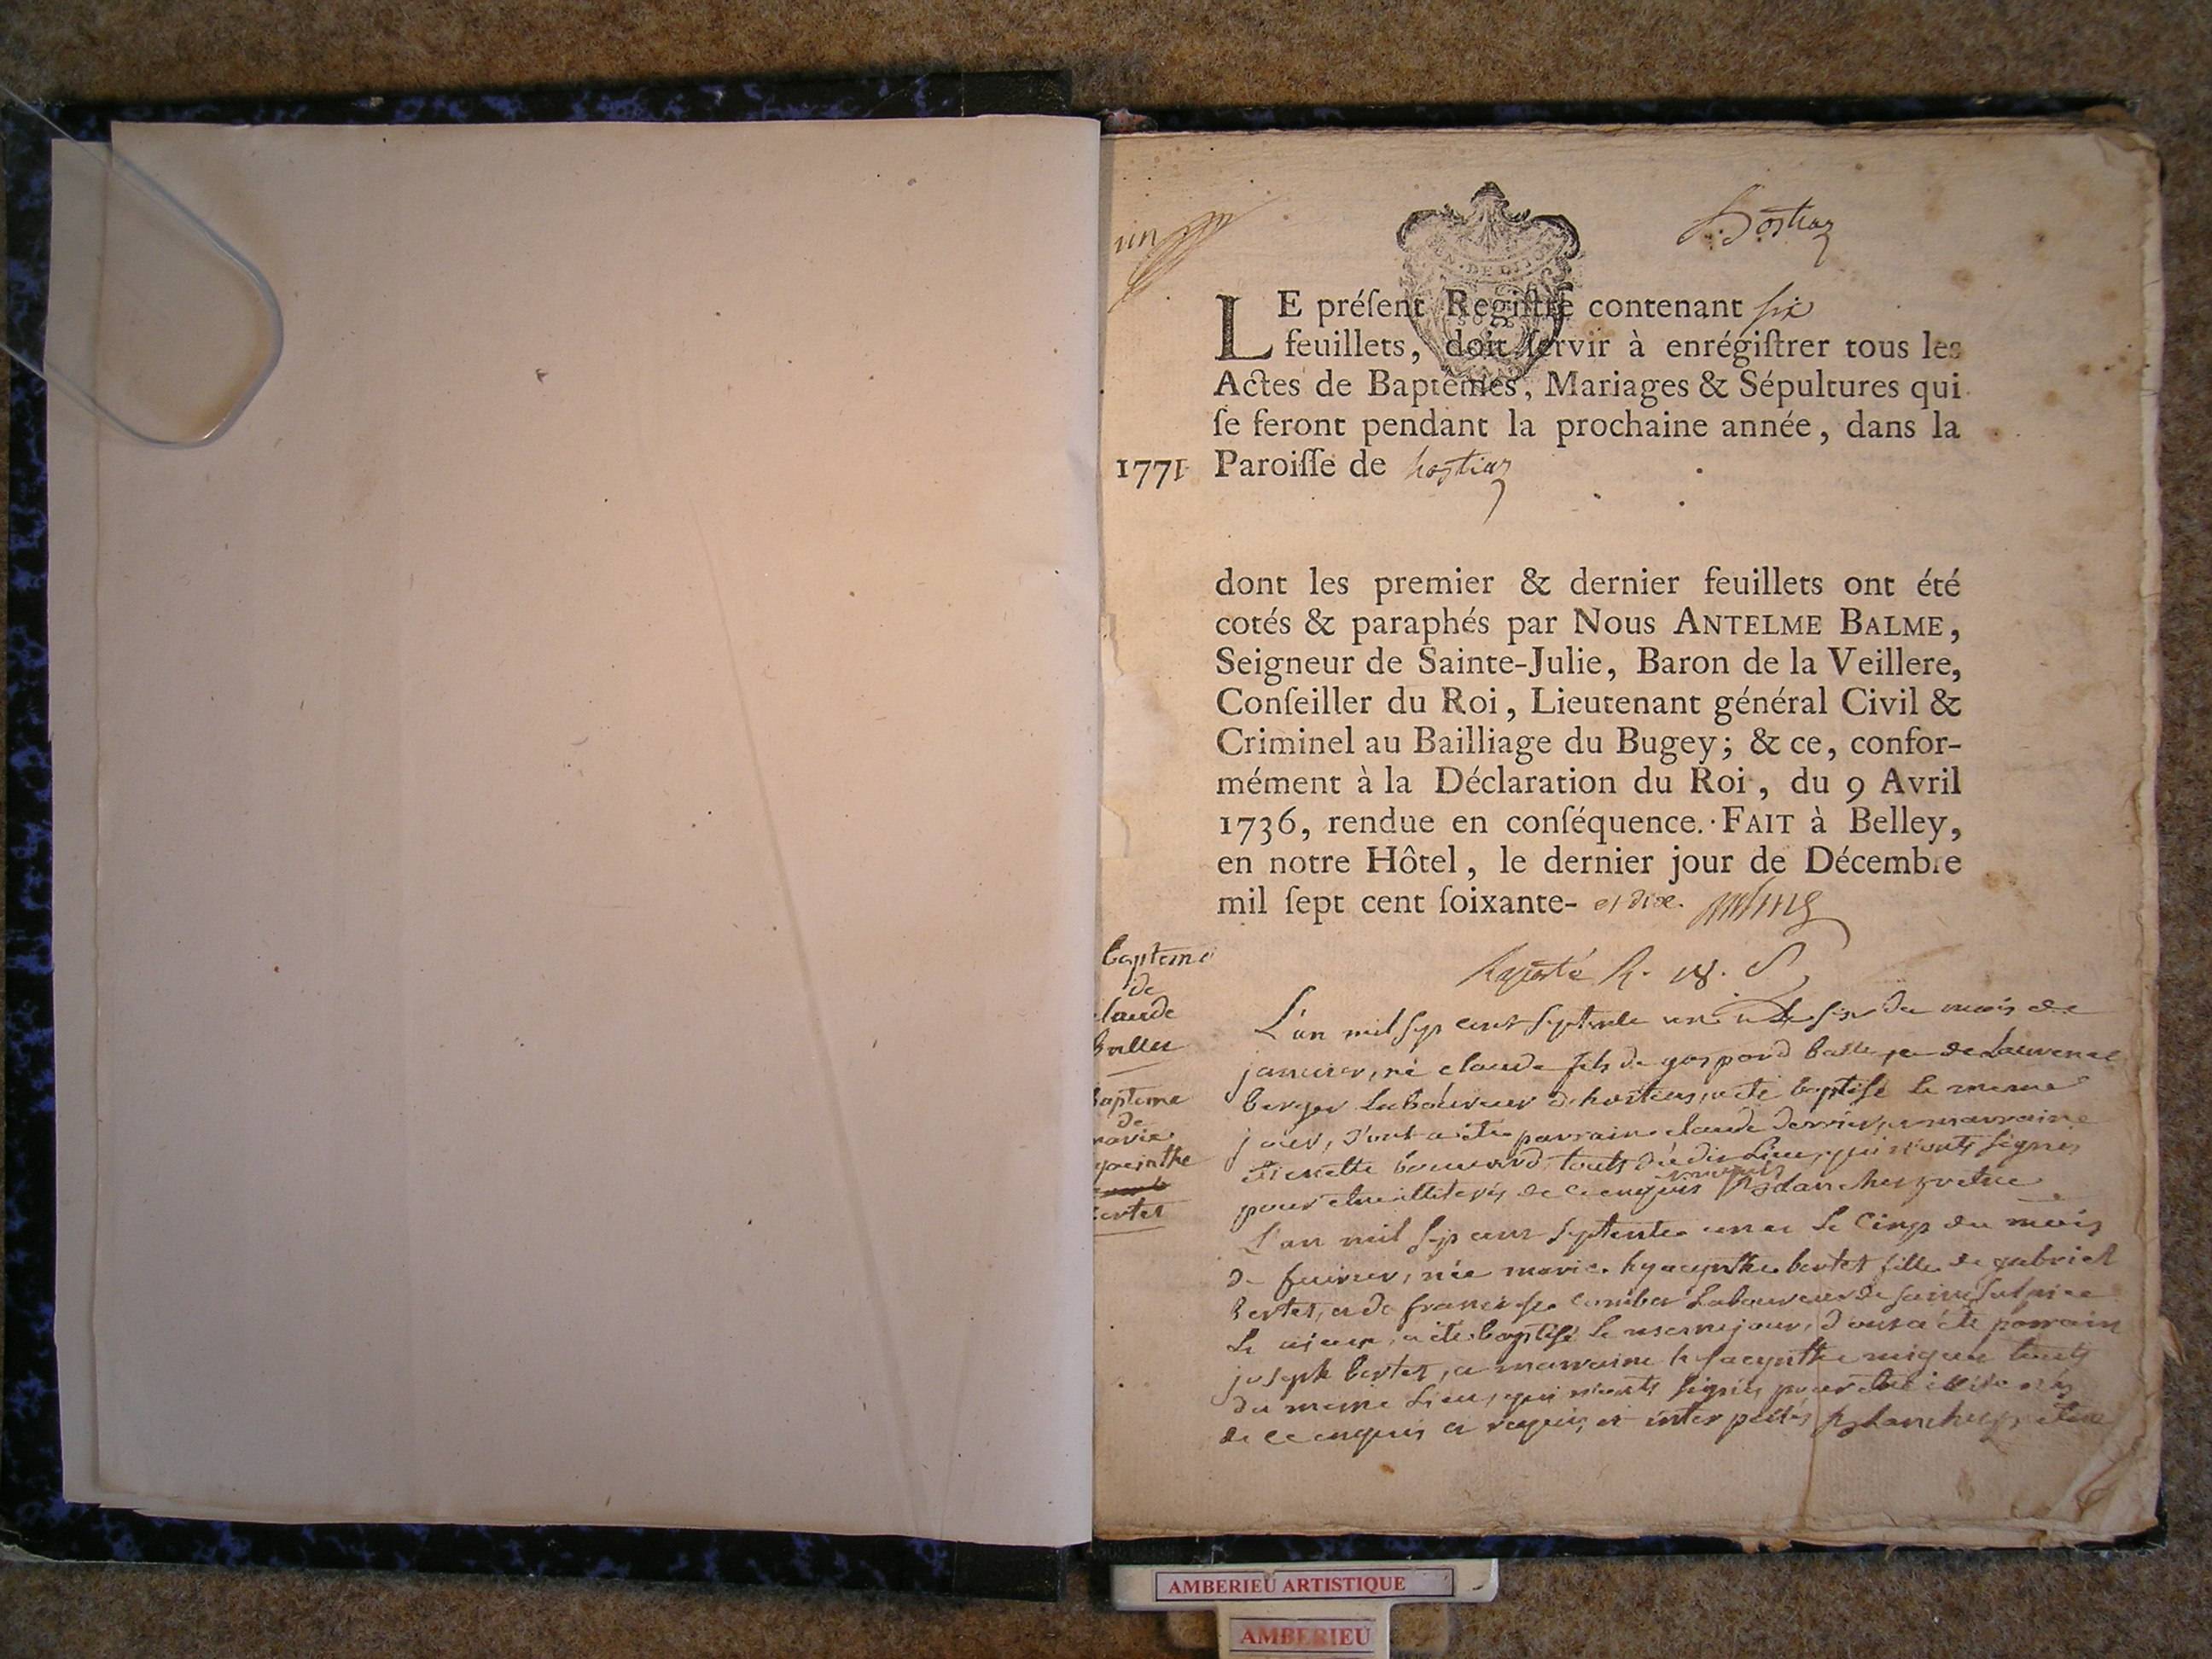 un
Hostiaz
GEN. DE DIJON
LE préſent Regiſtre contenant six
feuillets, doit ſervir à enrégiſtrer tous les
Actes de Baptêmes, Mariages & Sépultures qui
ſe feront pendant la prochaine année, dans la
1771 Paroiſſe de hostiaz
dont les premier & dernier feuillets ont été
cotés & paraphés par Nous ANTELME BALME,
Seigneur de Sainte-Julie, Baron de la Veillere,
Conſeiller du Roi, Lieutenant général Civil &
Criminel au Bailliage du Bugey; & ce, confor-
mément à la Déclaration du Roi, du 9 Avril
1736, rendue en conſéquence. FAIT à Belley,
en notre Hôtel, le dernier jour de Décembre
mil ſept cent ſoixante- et dix.
Bapteme
de
claude
L'an mil sep cent septente un le six du mois de
janvier, né claude fils de gaspard et de
berger Laboureur d'hostiaz, a été baptisé le meme
jour, dont a été parrain claude et marraine
touts du dit Lieu, qui n'ont signés
pour etre illiterés de ce enquis planchez prêtre
Bapteme
de
marie
hyacinthe
bertet
L'an mil sep cent septente un et le cinq du mois
de fevrier, née marie hyacynthe bertet fille de gabriel
bertet, et de françoise Laboureur de saint sulpice
le vieux, a été baptisé le meme jour, dont a été parrain
joseph bertet, et marraine hyacynthe touts
du meme Lieu, qui n'ont signés pour etre illiterés
de ce enquis et requis, et interpellés planchez prêtre
AMBERIEU ARTISTIQUE
AMBERIEU